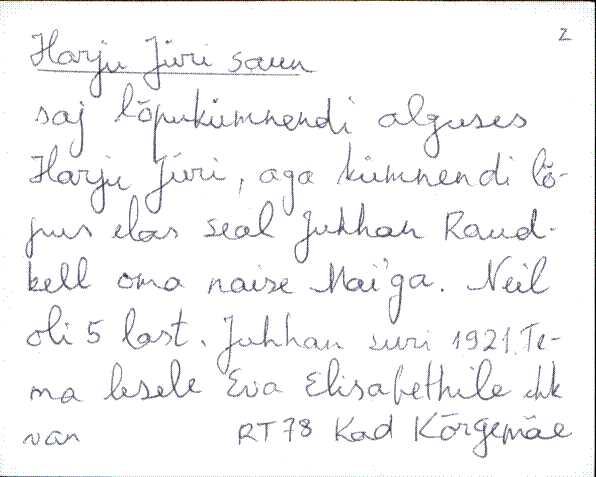 2
Harju Jüri saun
saj lõpukümnendi alguses
Harju Jüri, aga kümnendi lõ-
pus elas seal Juhhan Raud-
kell oma naise Mai'ga. Neil
oli 5 last. Juhhan suri 1921. Te-
ma lesele Eva Elisabethile ehk
van RT 78 Kad Kõrgemäe